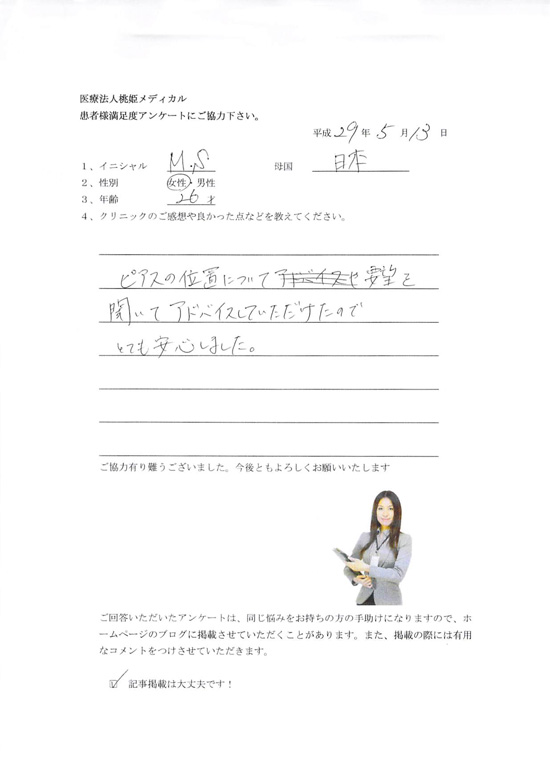 医療法人桃姫メディカル
患者様満足度アンケートにご協力下さい。
平成 29 年 5 月 13 日
1、イニシャル M.S 母国 日本
2、性別 女性・男性
3、年齢 26 才
4、クリニックのご感想や良かった点などを教えてください。
ピアスの位置について アドバイスや 要望を
聞いて アドバイスしていただけたので
とても 安心しました。
ご協力有り難うございました。今後ともよろしくお願いいたします
ご回答いただいたアンケートは、同じ悩みをお持ちの方の手助けになりますので、ホ
ームページのブログに掲載させていただくことがあります。また、掲載の際には有用
なコメントをつけさせていただきます。
☑ 記事掲載は大丈夫です！